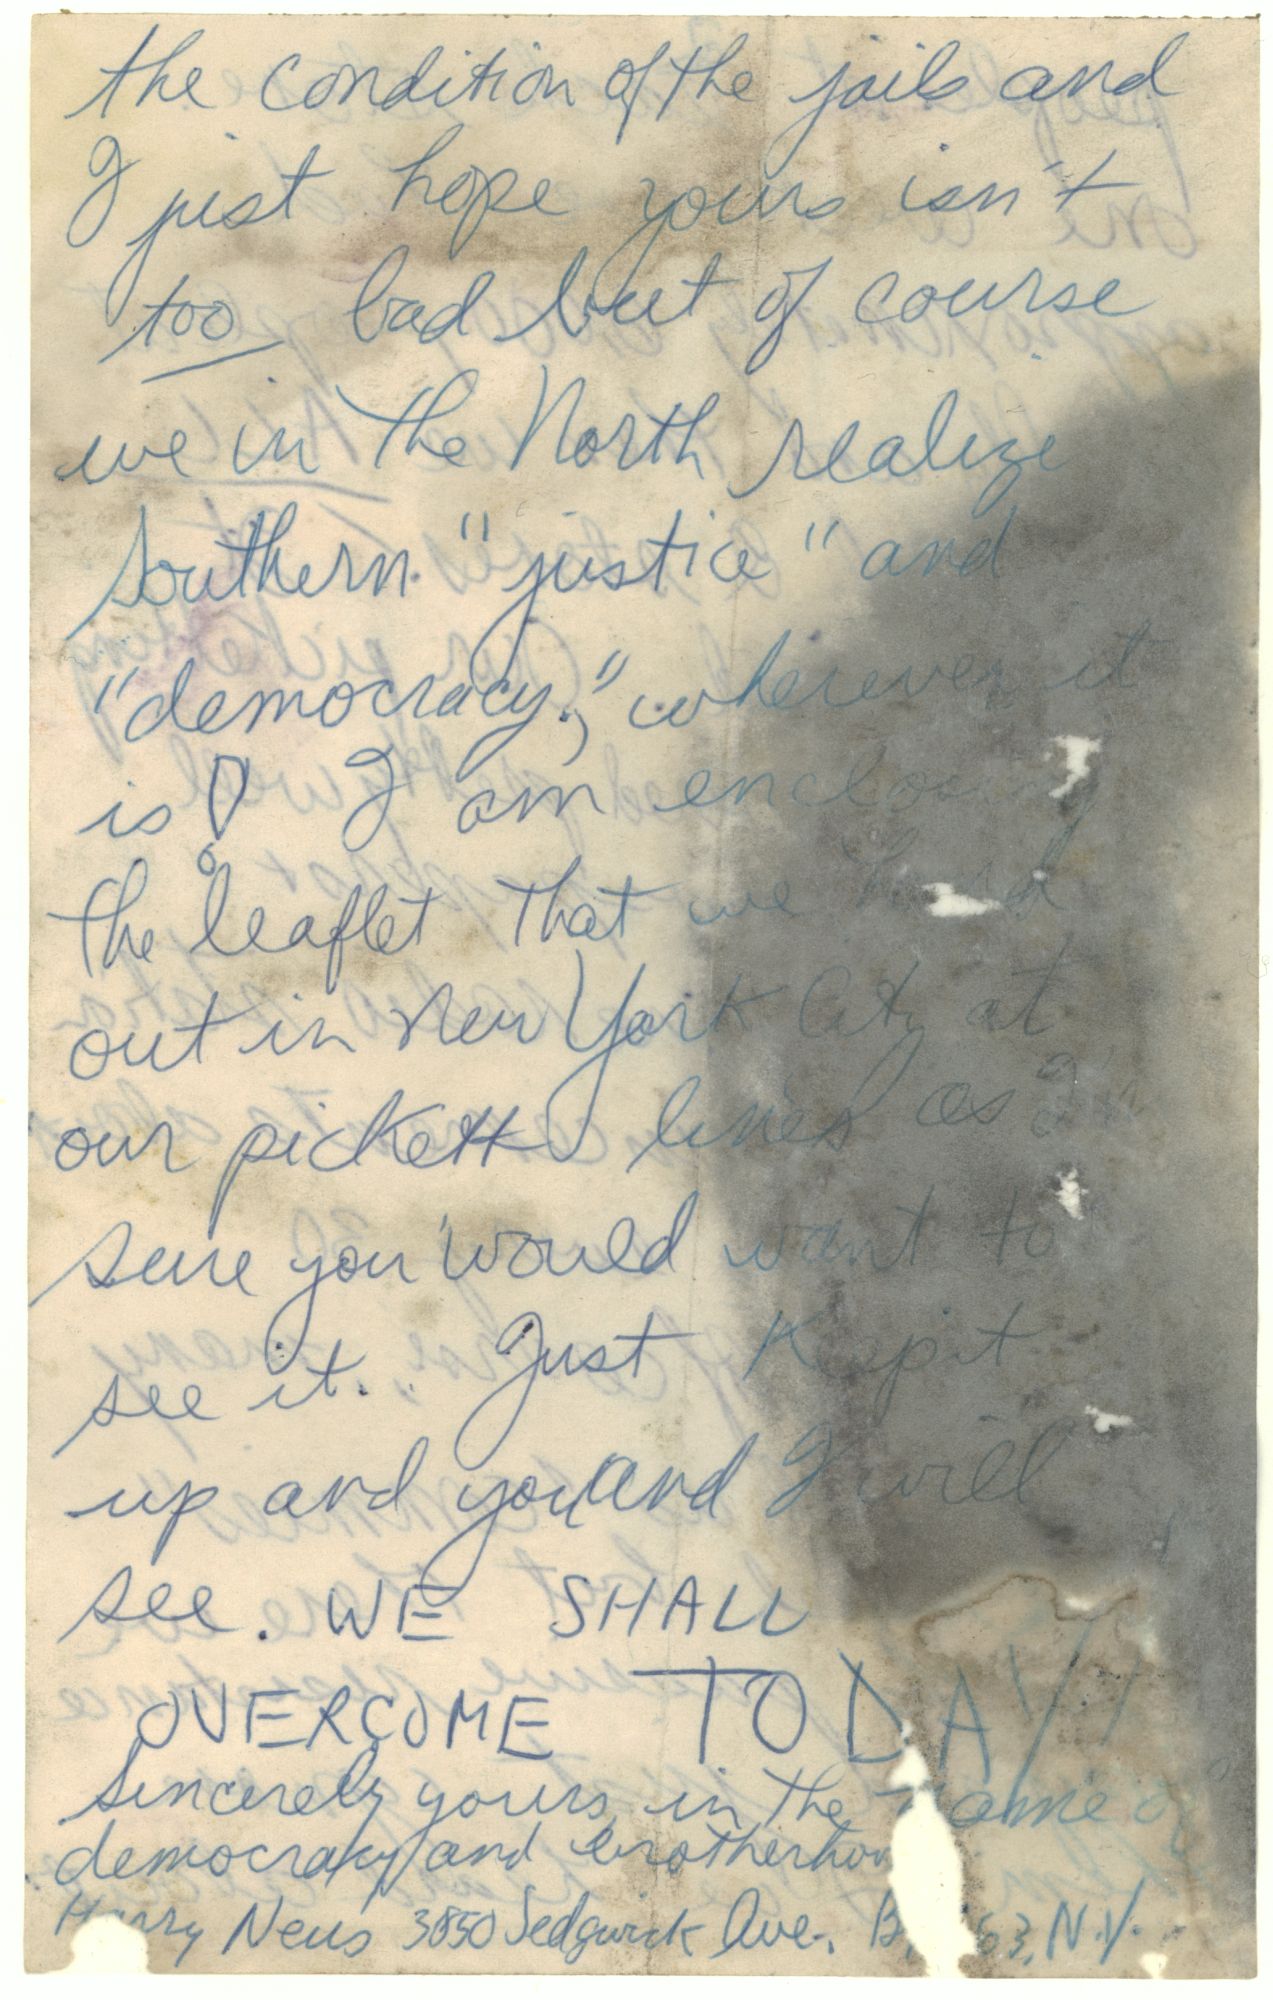 the condition of the jails and
I just hope yours isn't
too bad but of course
we in the North realize
Southern "justice" and
"democracy," wherever it
is! I am enclosing
the leaflet that we hand
out in New York City at
our pickett lines as I'm
sure you would want to
see it. Just Keep it
up and you and I will
see. WE SHALL
OVERCOME TODAY!
Sincerely yours, in the name of
democracy and brotherhoo
Harry Neus 3850 Sedgwick Ave., 63, N.Y.